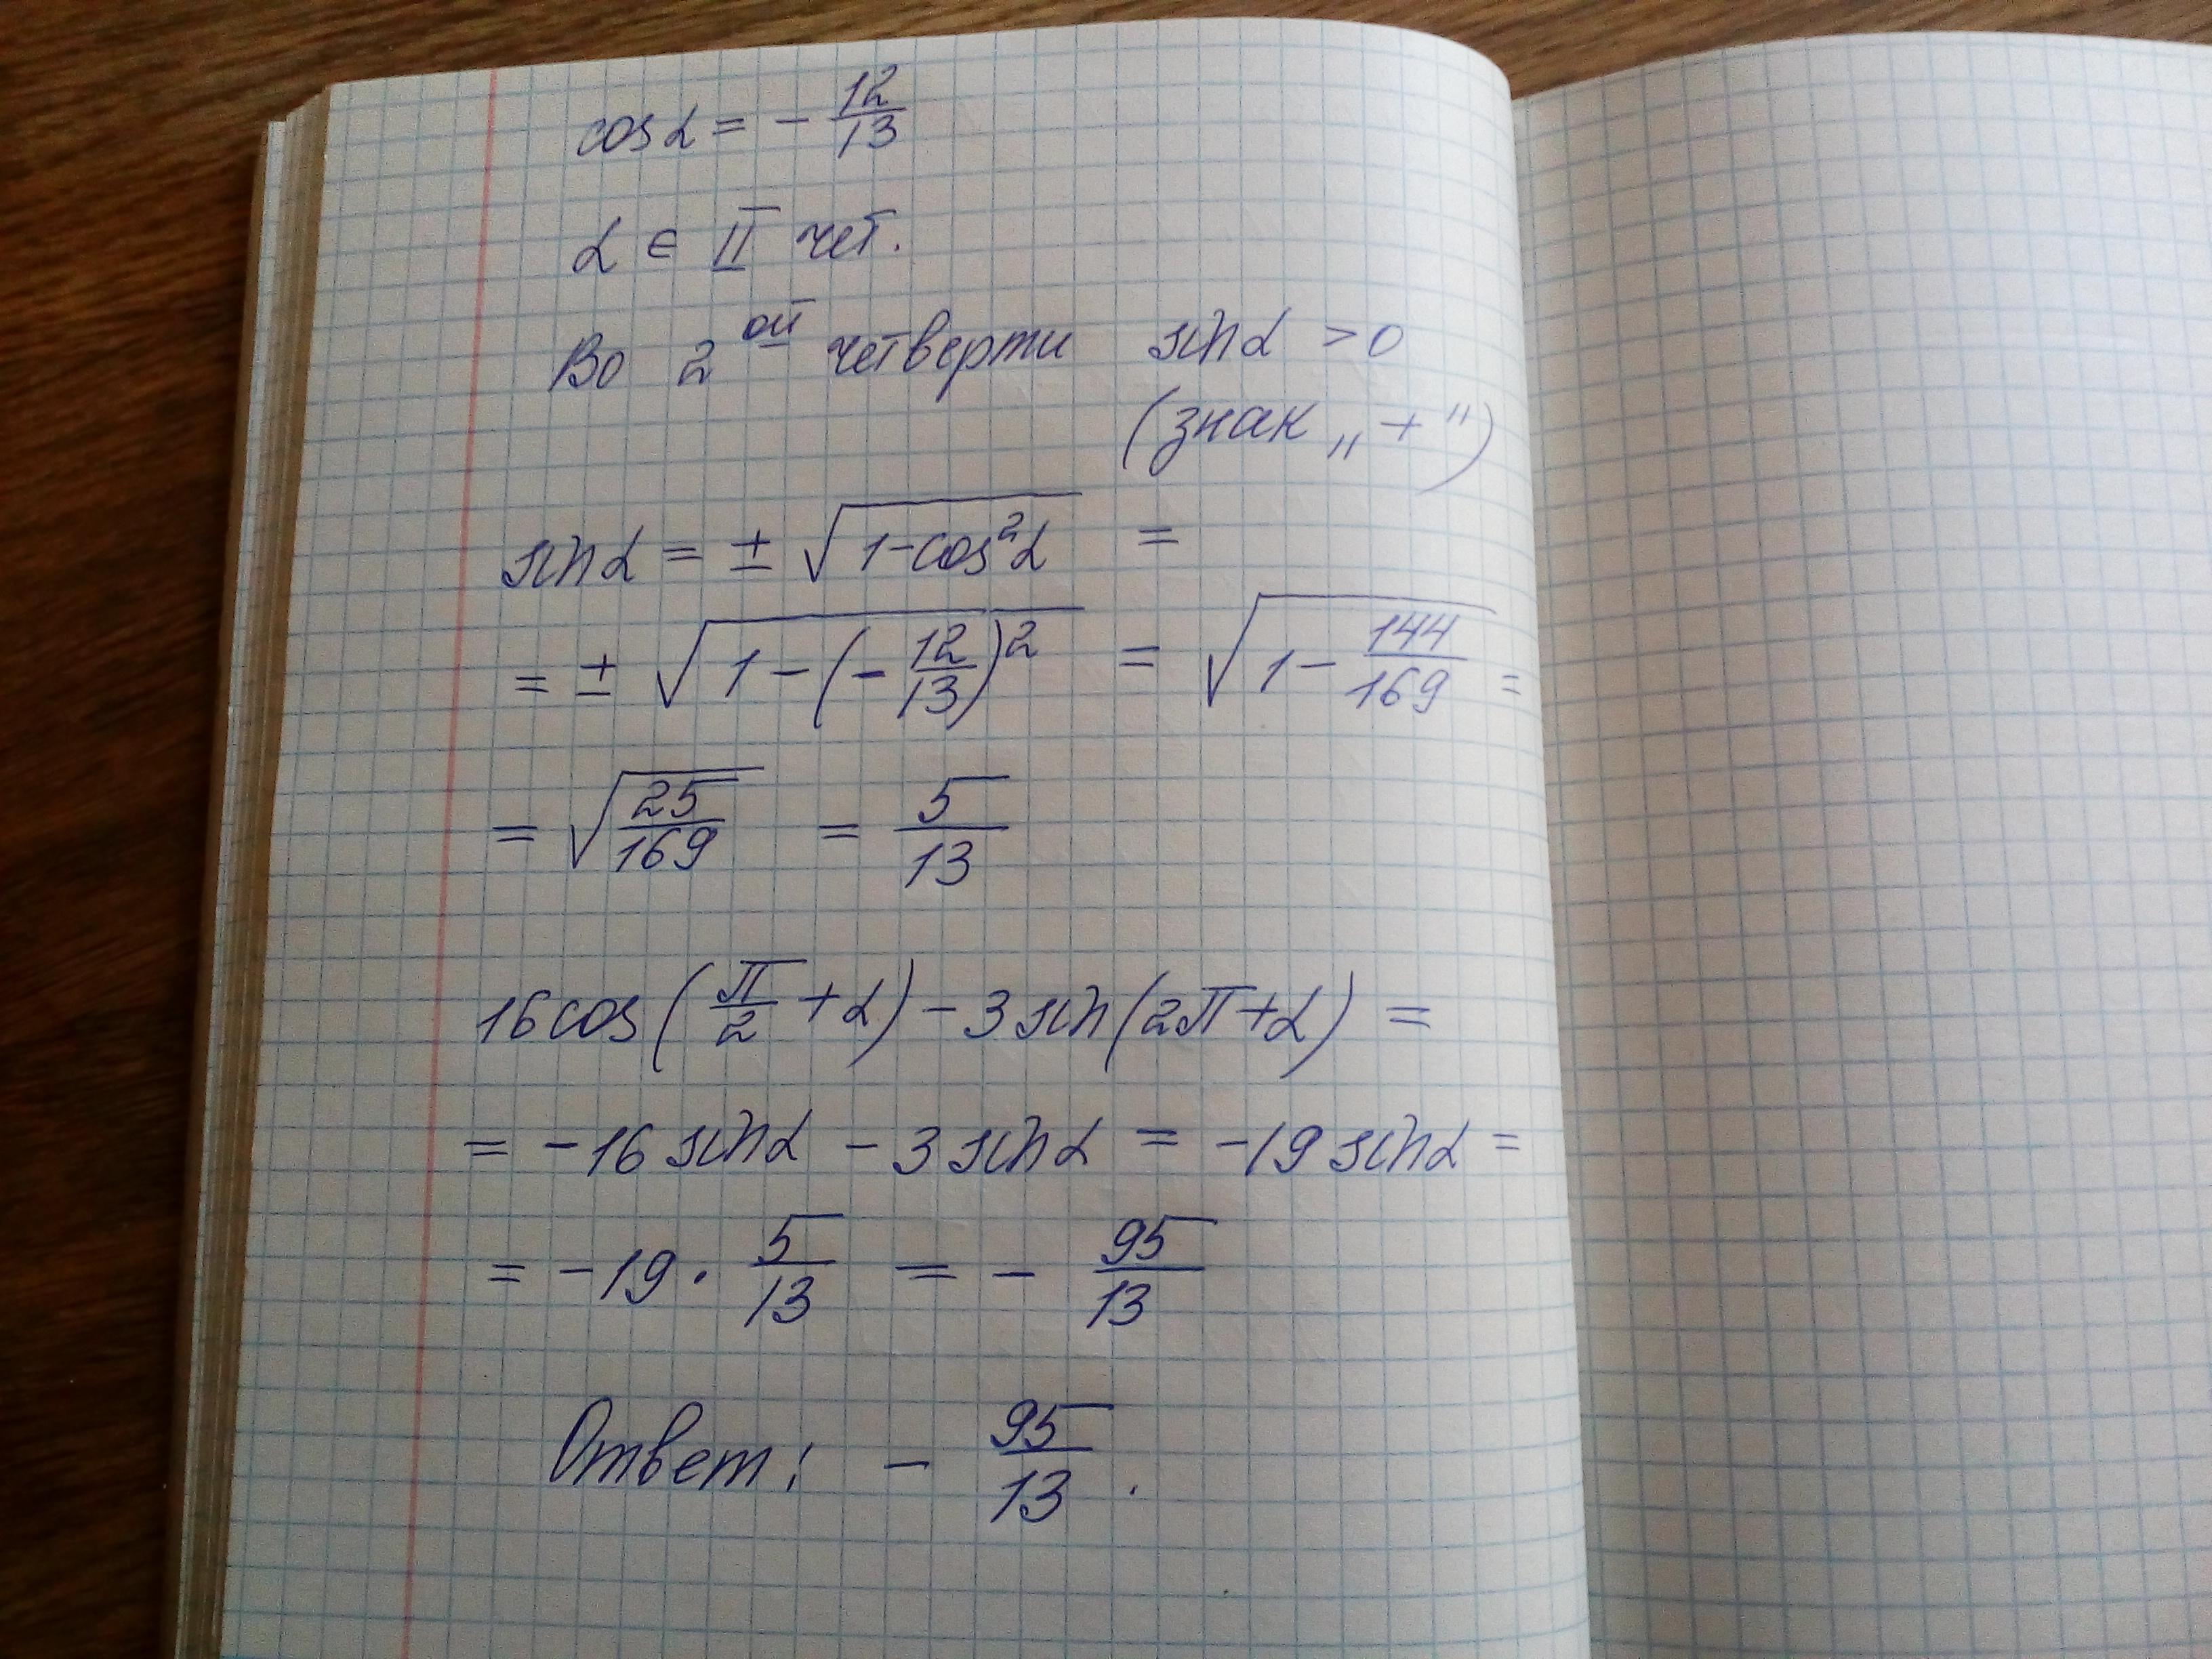 cos α = - 12/13
α ∈ II чет.
Во 2ой четверти sin α > 0
(знак „+")
sin α = ± √(1-cos²α) =
= ± √(1-(-12/13)²) = √(1-144/169) =
= √(25/169) = 5/13
16cos(π/2+α) - 3 sin(2π+α) =
= -16 sin α - 3 sin α = -19 sin α =
= -19 · 5/13 = - 95/13
Ответ: - 95/13.